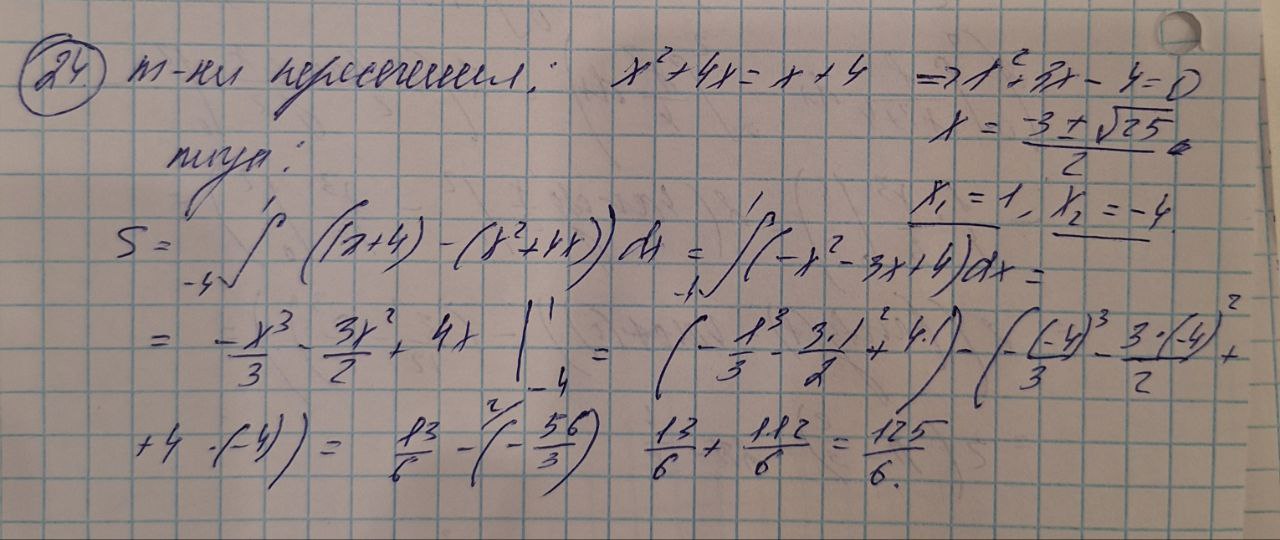 24. т-ки пересечения: x² + 4x = x + 4 => x² + 3x - 4 = 0
x = (-3 ± √25)/2.
тогда:
x₁ = 1, x₂ = -4
S = ∫₋₄¹ ((x+4) - (x²+4x)) dx = ∫₋₄¹ (-x² - 3x + 4) dx =
= -x³/3 - 3x²/2 + 4x |₋₄¹ = (-1³/3 - 3·1²/2 + 4·1) - (-(-4)³/3 - 3·(-4)²/2 +
+ 4·(-4)) = 13/6 - (-56/3) 2/ 13/6 + 112/6 = 125/6.